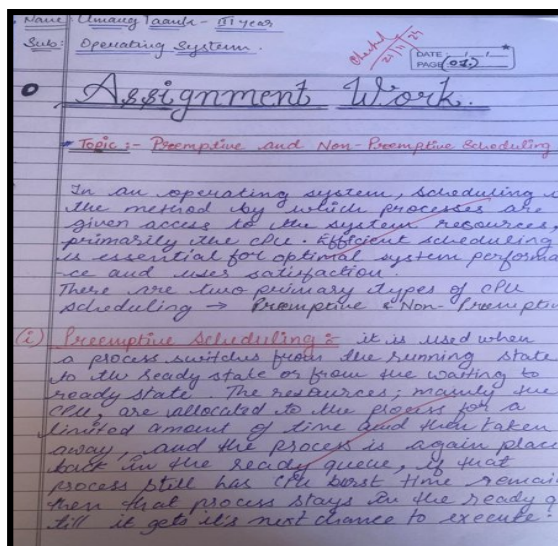 Name: Umang - III year
Sub: Operating System.
Checked
21/11/24
DATE: __/__/__
PAGE (01.)
Assignment Work.
Topic :- Preemptive and Non-Preemptive Scheduling
In an operating system, scheduling
the method by which processes are
given access to the system resources,
primarily the CPU. Efficient scheduling
is essential for optimal system performa
-ce and user satisfaction.
There are two primary types of CPU
scheduling → Preemptive & Non-Preemptive
(i) Preemptive Scheduling :- it is used when
a process switches from the running state
to the ready state or from the waiting to
ready state. The resources; mainly the
CPU, are allocated to the process for a
limited amount of time and then taken
away, and the process is again place
back in the ready queue, if that
process still has CPU burst time remain
then that process stays in the ready q
till it gets it's next chance to execute.